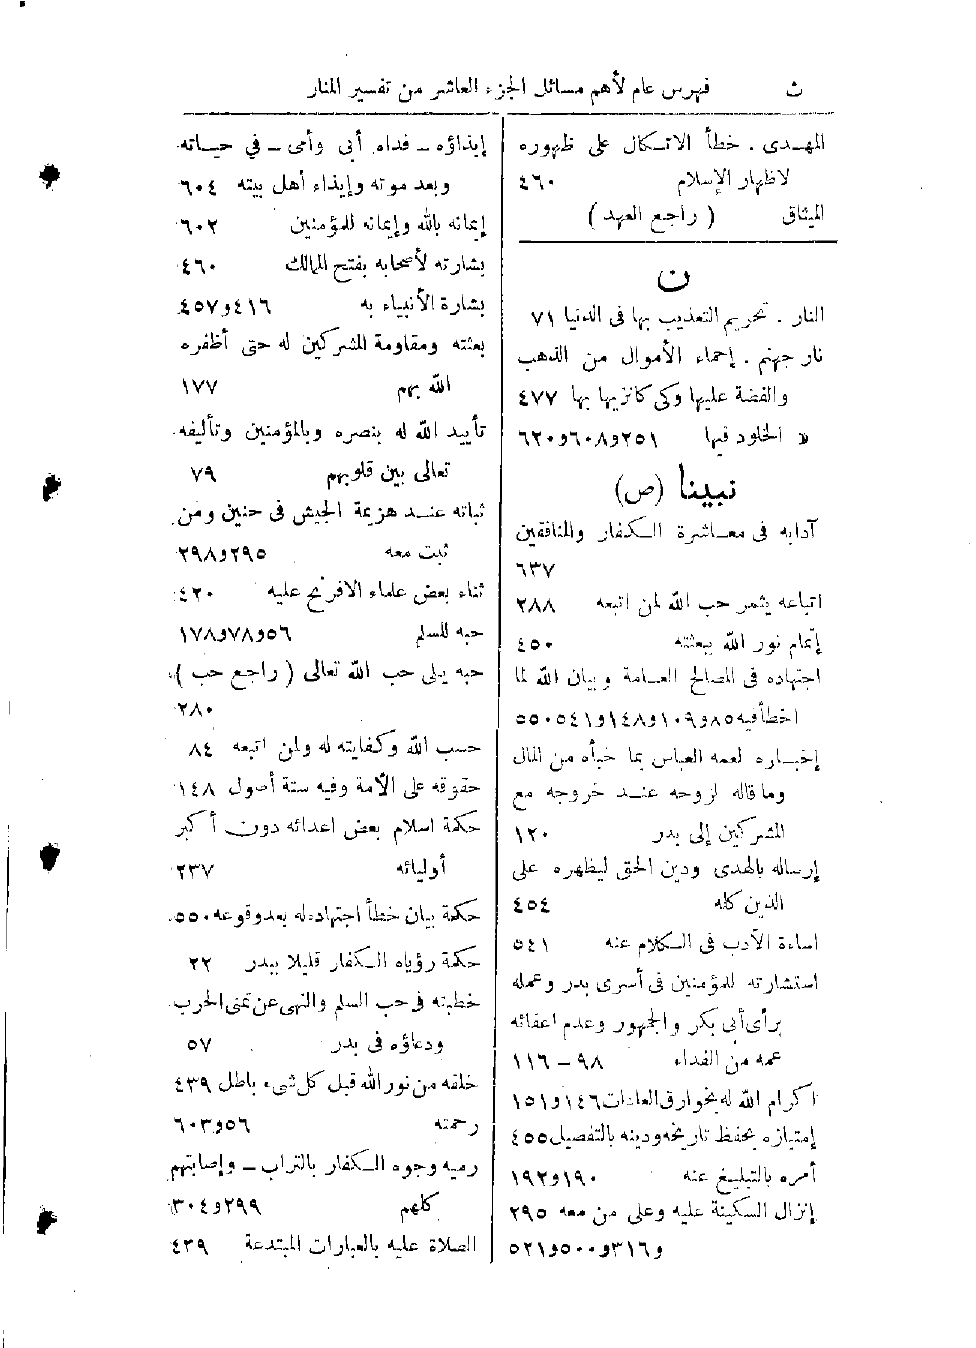 ث فهرس عام لأهم مسائل الجزء العاشر من تفسير المنار
المهدى . خطأ الاتكال على ظهوره
لاظهار الإسلام ٤٦٠
الميثاق ( راجع العهد )
ن
النار . تحريم التعذيب بها فى الدنيا ٧١
نار جهنم . إحماء الأموال من الذهب
والفضة عليها وكى كانزيها بها ٤٧٧
لا الخلود فيها ٢٥١و٦٠٨و٦٢٠
نبينا (ص)
آدابه فى معاشرة الكفار والمنافقين
٦٣٧
اتباعه يثمر حب الله لمن اتبعه ٢٨٨
إتمام نور الله ببعثته ٤٥٠
اجتهاده فى المصالح العامة وبيان الله لما
اخطأ فيه ٨٥و١٠٩و١٤٨و٥٤١و٥٥٠
إخباره لعمه العباس بما خبأه من المال
وما قاله لزوجه عند خروجه مع
المشركين إلى بدر ١٢٠
إرساله بالهدى ودين الحق ليظهره على
الدين كله ٤٥٤
اساءة الأدب فى الكلام عنه ٥٤١
استشارته للمؤمنين فى أسرى بدر وعمله
برأى أبى بكر والجمهور وعدم اعفائه
عمه من الفداء ٩٨ – ١١٦
اكرام الله له بخوارق العادات ١٤٦و١٥١
إمتيازه بحفظ تاريخه ودينه بالتفصيل ٤٥٥
أمره بالتبليغ عنه ١٩٠و١٩٢
إنزال السكينة عليه وعلى من معه ٢٩٥
و٣١٦و٥٠٠و٥٢١
إيذاؤه – فداه أبى وأمى – في حياته
وبعد موته وإيذاء أهل بيته ٦٠٤
إيمانه بالله وإيمانه للمؤمنين ٦٠٢
بشارته لأصحابه بفتح الممالك ٤٦٠
بشارة الأنبياء به ٤١٦و٤٥٧
بعثته ومقاومة المشركين له حتى أظفره
الله بهم ١٧٧
تأييد الله له بنصره وبالمؤمنين وتأليفه
تعالى بين قلوبهم ٧٩
ثباته عند هزيمة الجيش فى حنين ومن
ثبت معه ٢٩٥و٢٩٨
ثناء بعض علماء الافرنج عليه ٤٢٠
حبه للسلم ٥٦و٧٨و١٧٨
حبه يلى حب الله تعالى ( راجع حب )
٢٨٠
حسب الله وكفايته له ولمن اتبعه ٨٤
حقوقه على الأمة وفيه ستة أصول ١٤٨
حكمة اسلام بعض اعدائه دون أكبر
أوليائه ٢٣٧
حكمة بيان خطأ اجتهاده له بعد وقوعه ٥٥٠
حكمة رؤياه الكفار قليلا ببدر ٢٢
خطبته فى حب السلم والنهى عن تمنى الحرب
ودعاؤه فى بدر ٥٧
خلقه من نور الله قبل كل شىء باطل ٤٣٩
رحمته ٥٦و٦٠٣
رميه وجوه الكفار بالتراب – وإصابتهم
كلهم ٢٩٩و٣٠٤
الصلاة عليه بالعبارات المبتدعة ٤٣٩